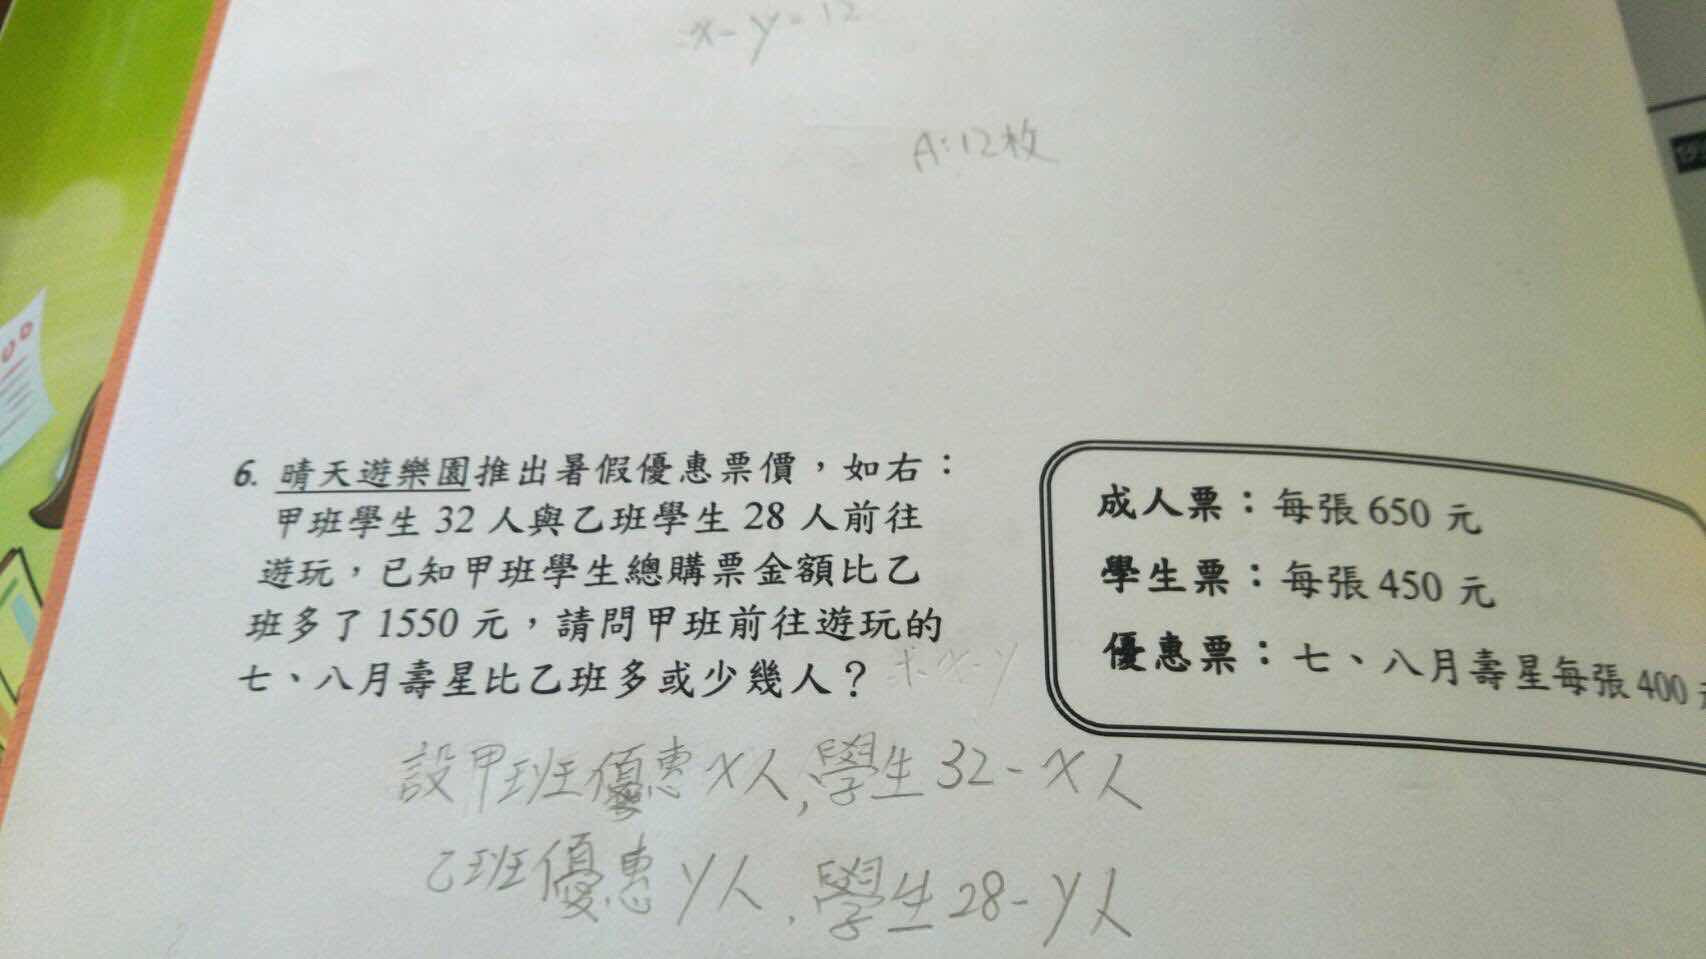 x-y=12
A:12枚
6. 晴天遊樂園推出暑假優惠票價，如右：
甲班學生 32 人與乙班學生 28 人前往
遊玩，已知甲班學生總購票金額比乙
班多了 1550 元，請問甲班前往遊玩的
七、八月壽星比乙班多或少幾人？
求x-y
成人票：每張 650 元
學生票：每張 450 元
優惠票：七、八月壽星每張 400
設甲班優惠x人,學生32-x人
乙班優惠y人,學生28-y人